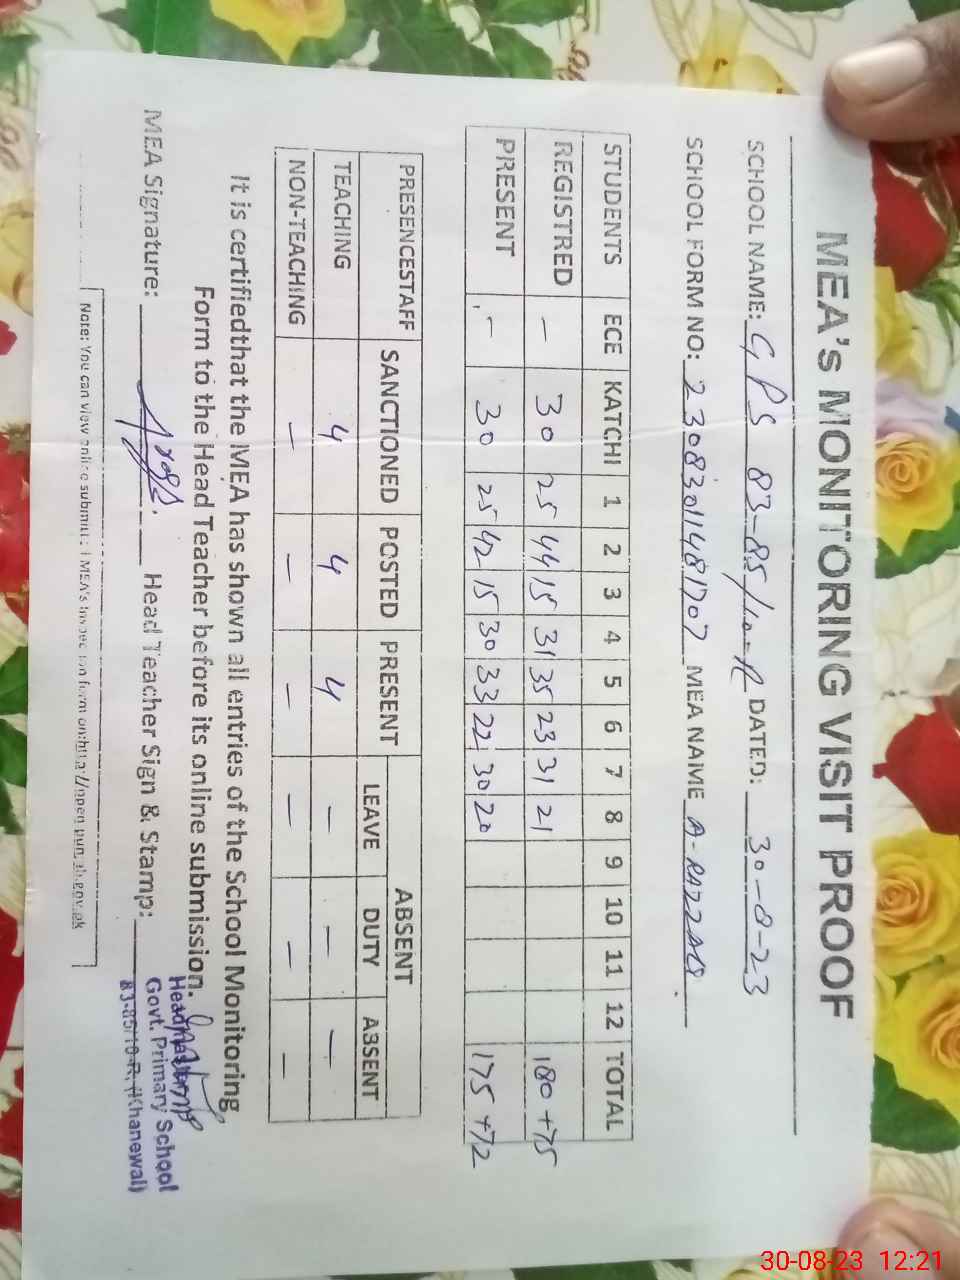 MEA's MONITORING VISIT PROOF
SCHOOL NAME: GPS 83-85/10-R DATED: 30-8-23
SCHOOL FORM NO: 23083011481707 MEA NAME A-RAZZAQ.
STUDENTS ECE KATCHI 1 2 3 4 5 6 7 8 9 10 11 12 TOTAL
REGISTRED - 30 25 44 15 31 35 23 31 21 180+75
PRESENT - 30 25 42 15 30 33 22 30 20 175+72
PRESENCESTAFF SANCTIONED POSTED PRESENT ABSENT
LEAVE DUTY ABSENT
TEACHING 4 4 4 - - -
NON-TEACHING - - - - - -
It is certifiedthat the MEA has shown all entries of the School Monitoring
Form to the Head Teacher before its online submission.
MEA Signature: Head Teacher Sign & Stamp:
Headmaster
Govt. Primary School
83-85/10-R, (Khanewal)
Note: You can view online submitted MEA's Inspection form on:http://open.punjab.gov.pk
30-08-23 12:21